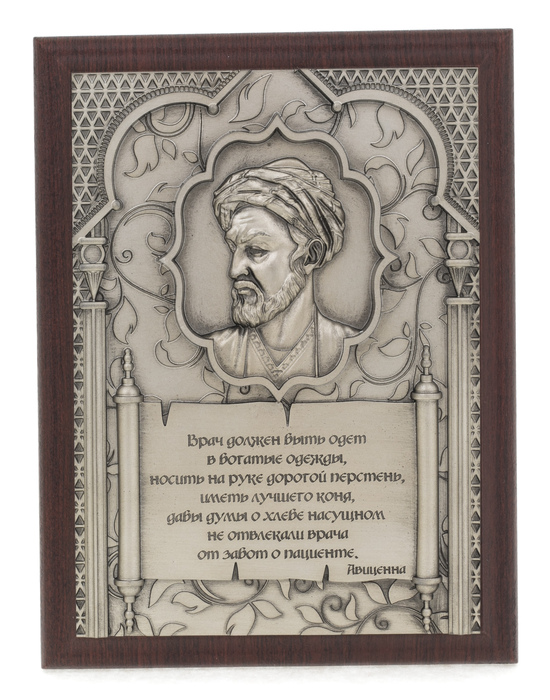 Врач должен быть одет
в богатые одежды,
носить на руке дорогой перстень,
иметь лучшего коня,
дабы думы о хлебе насущном
не отвлекали врача
от забот о пациенте.
Авиценна